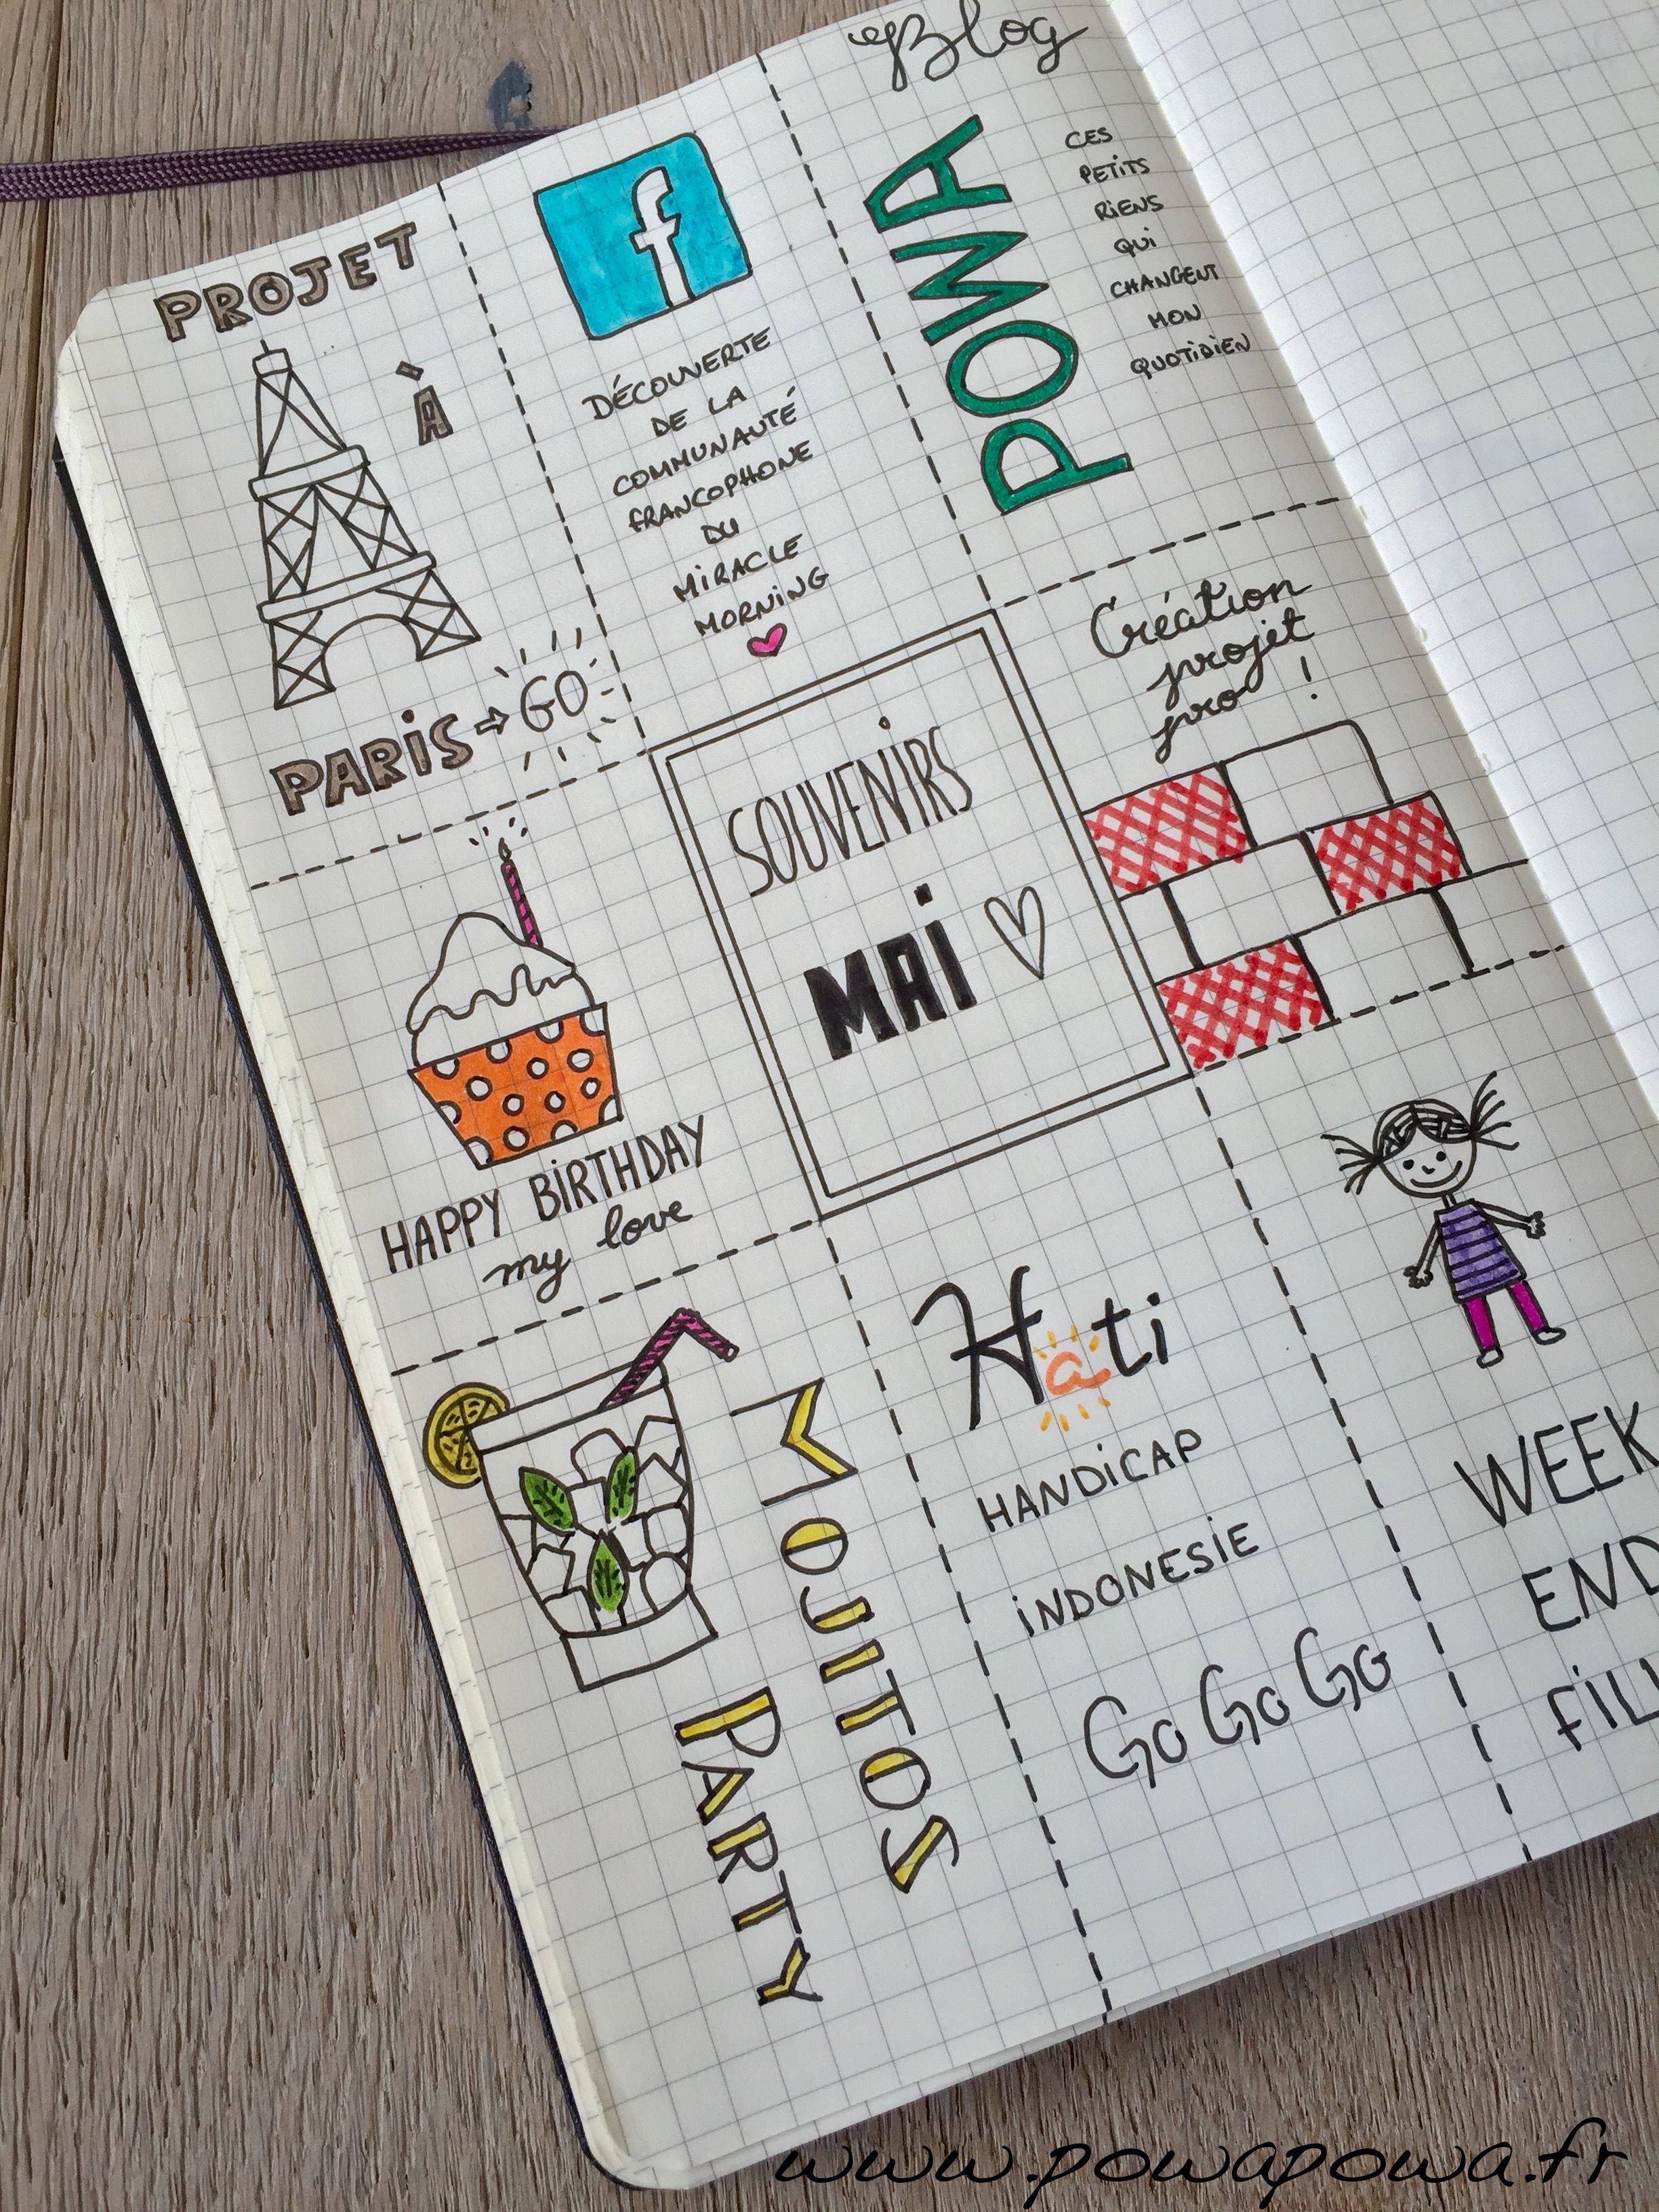 PROJET
À
PARiS → GO
f
DÉCOUVERTE
DE LA
COMMUNAUTÉ
FRANCOPHONE
DU
MiRACLE
MORNiNG
Blog
POWA
CES
PETiTS
RiENS
QUi
CHANGENT
MON
QUOTiDiEN
HAPPY BiRTHDAY
my love
SOUVENiRS
MAi
Création
projet
pro !
MOJITOS
PARTY
Hati
HANDiCAP
iNDONESiE
Go Go Go
WEEK
END
FiLL
www.powapowa.fr